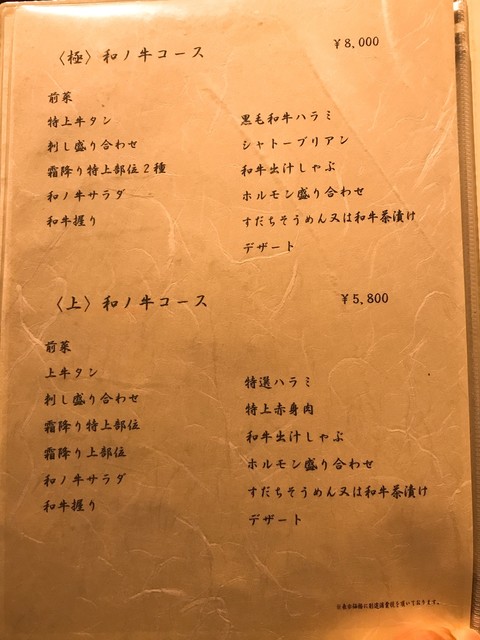 〈極〉和ノ牛コース ¥8,000
前菜
特上牛タン
刺し盛り合わせ
霜降り特上部位2種
和ノ牛サラダ
和牛握り
黒毛和牛ハラミ
シャトーブリアン
和牛出汁しゃぶ
ホルモン盛り合わせ
すだちそうめん又は和牛茶漬け
デザート
〈上〉和ノ牛コース ¥5,800
前菜
上牛タン
刺し盛り合わせ
霜降り特上部位
霜降り上部位
和ノ牛サラダ
和牛握り
特選ハラミ
特上赤身肉
和牛出汁しゃぶ
ホルモン盛り合わせ
すだちそうめん又は和牛茶漬け
デザート